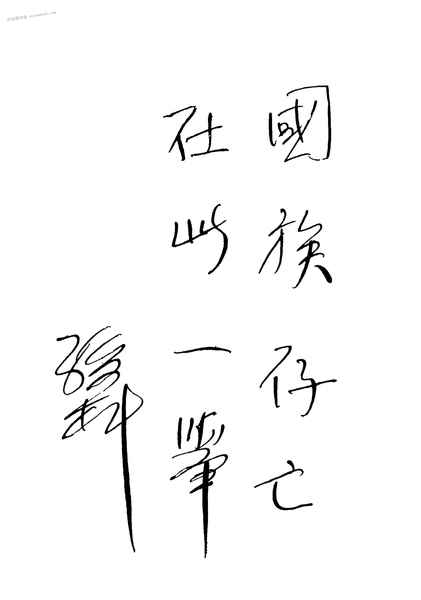 國族存亡
在此一舉